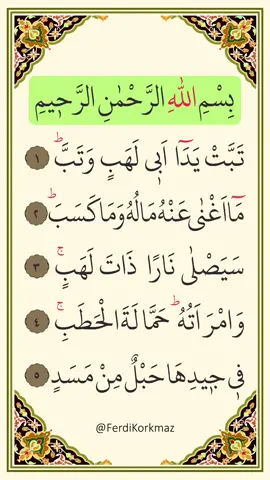 بِسْمِ اللهِ الرَّحْمٰنِ الرَّحٖيمِ
تَبَّتْ يَدَٓا اَبٖي لَهَبٍ وَتَبَّۜ ١
مَٓا اَغْنٰى عَنْهُ مَالُهُ وَمَا كَسَبَۜ ٢
سَيَصْلٰى نَارًا ذَاتَ لَهَبٍۚ ٣
وَامْرَاَتُهُۜ حَمَّالَةَ الْحَطَبِۚ ٤
فٖي جٖيدِهَا حَبْلٌ مِنْ مَسَدٍ ٥
@FerdiKorkmaz